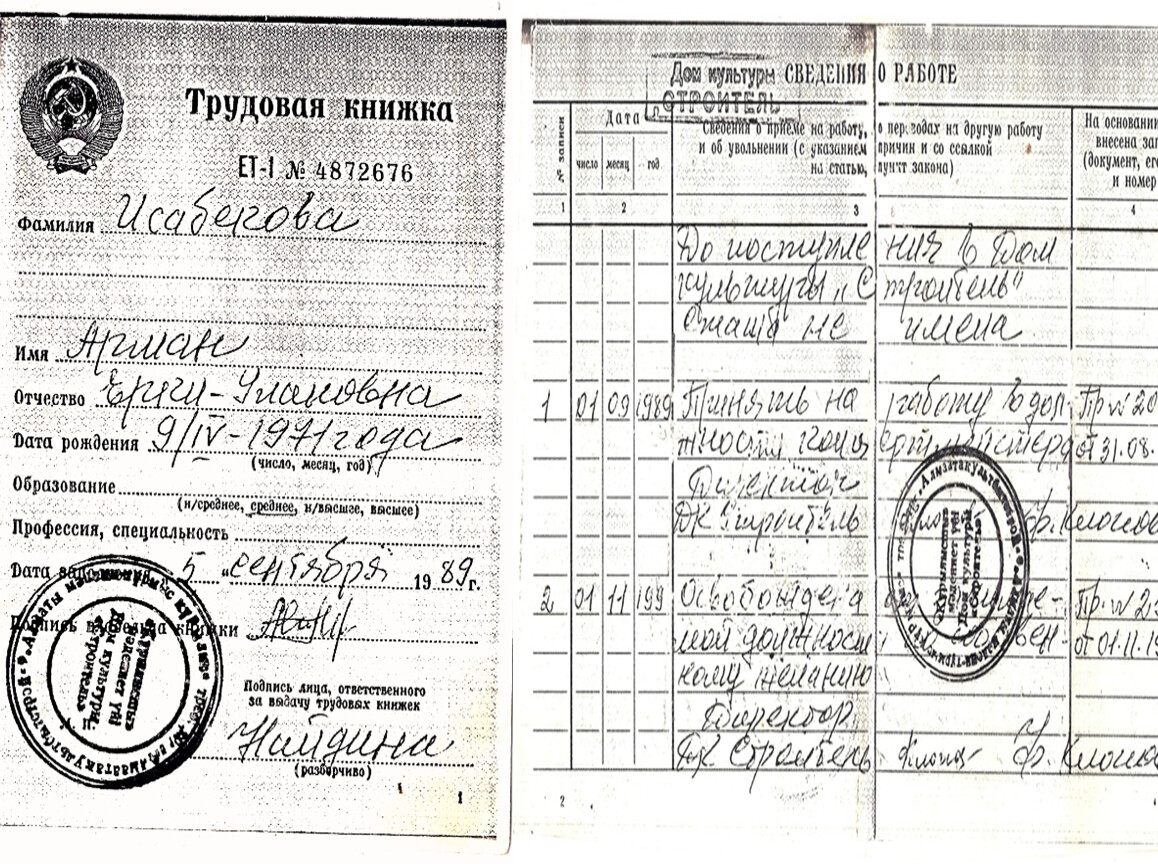 Трудовая книжка
ЕТ-I № 4872676
Фамилия Исабегова
Имя Арман
Отчество
Дата рождения 9/IV-1971 года
(число, месяц, год)
Образование
(н/среднее, среднее, н/высшее, высшее)
Профессия, специальность
Дата 5 "сентября 1989 г.
Подпись владельца книжки
Подпись лица, ответственного
за выдачу трудовых книжек
Найдина
(разборчиво)
1
Дом культуры
"СТРОИТЕЛЬ"
СВЕДЕНИЯ О РАБОТЕ
№ записи
Дата
число месяц год
Сведения о приеме на работу, о переводах на другую работу
и об увольнении (с указанием причин и со ссылкой
на статью, пункт закона)
На основании
внесена
(документ, его
и номер
1 2 3 4
До поступления в Дом
культуры „Строитель"
стажа не имела
1 01 09 1989 Принять на работу в дол- Пр № 20
жности концертмейстера от 31.08.
Директор
ДК Строитель
2 01 11 199 Освобождена Пр. № 2
мой должности от 01.11.19
ному желанию
Директор
ДК Строитель
2